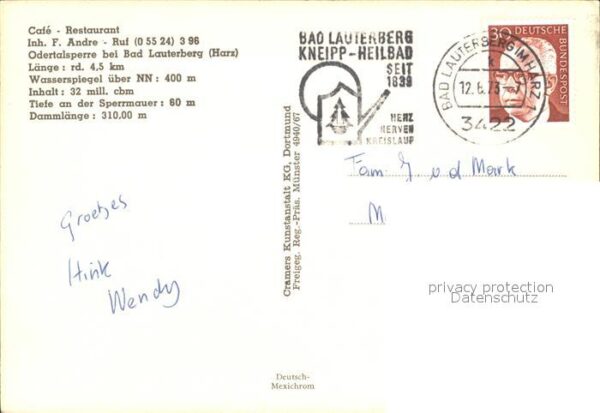 Café - Restaurant
Inh. F. Andre - Ruf (0 55 24) 3 96
Odertalsperre bei Bad Lauterberg (Harz)
Länge : rd. 4,5 km
Wasserspiegel über NN : 400 m
Inhalt : 32 mill. cbm
Tiefe an der Sperrmauer : 60 m
Dammlänge : 310.00 m
BAD LAUTERBERG
KNEIPP-HEILBAD
SEIT
1839
HERZ
NERVEN
KREISLAUF
BAD LAUTERBERG IM HARZ 1
12.6.73-7
3422
30 DEUTSCHE
BUNDESPOST
Fam. J. v d Mark
M
Groetjes
Hink
Wendy
Cramers Kunstanstalt KG, Dortmund
Freigeg. Reg.-Präs. Münster 4940/67
privacy protection
Datenschutz
Deutsch-
Mexichrom